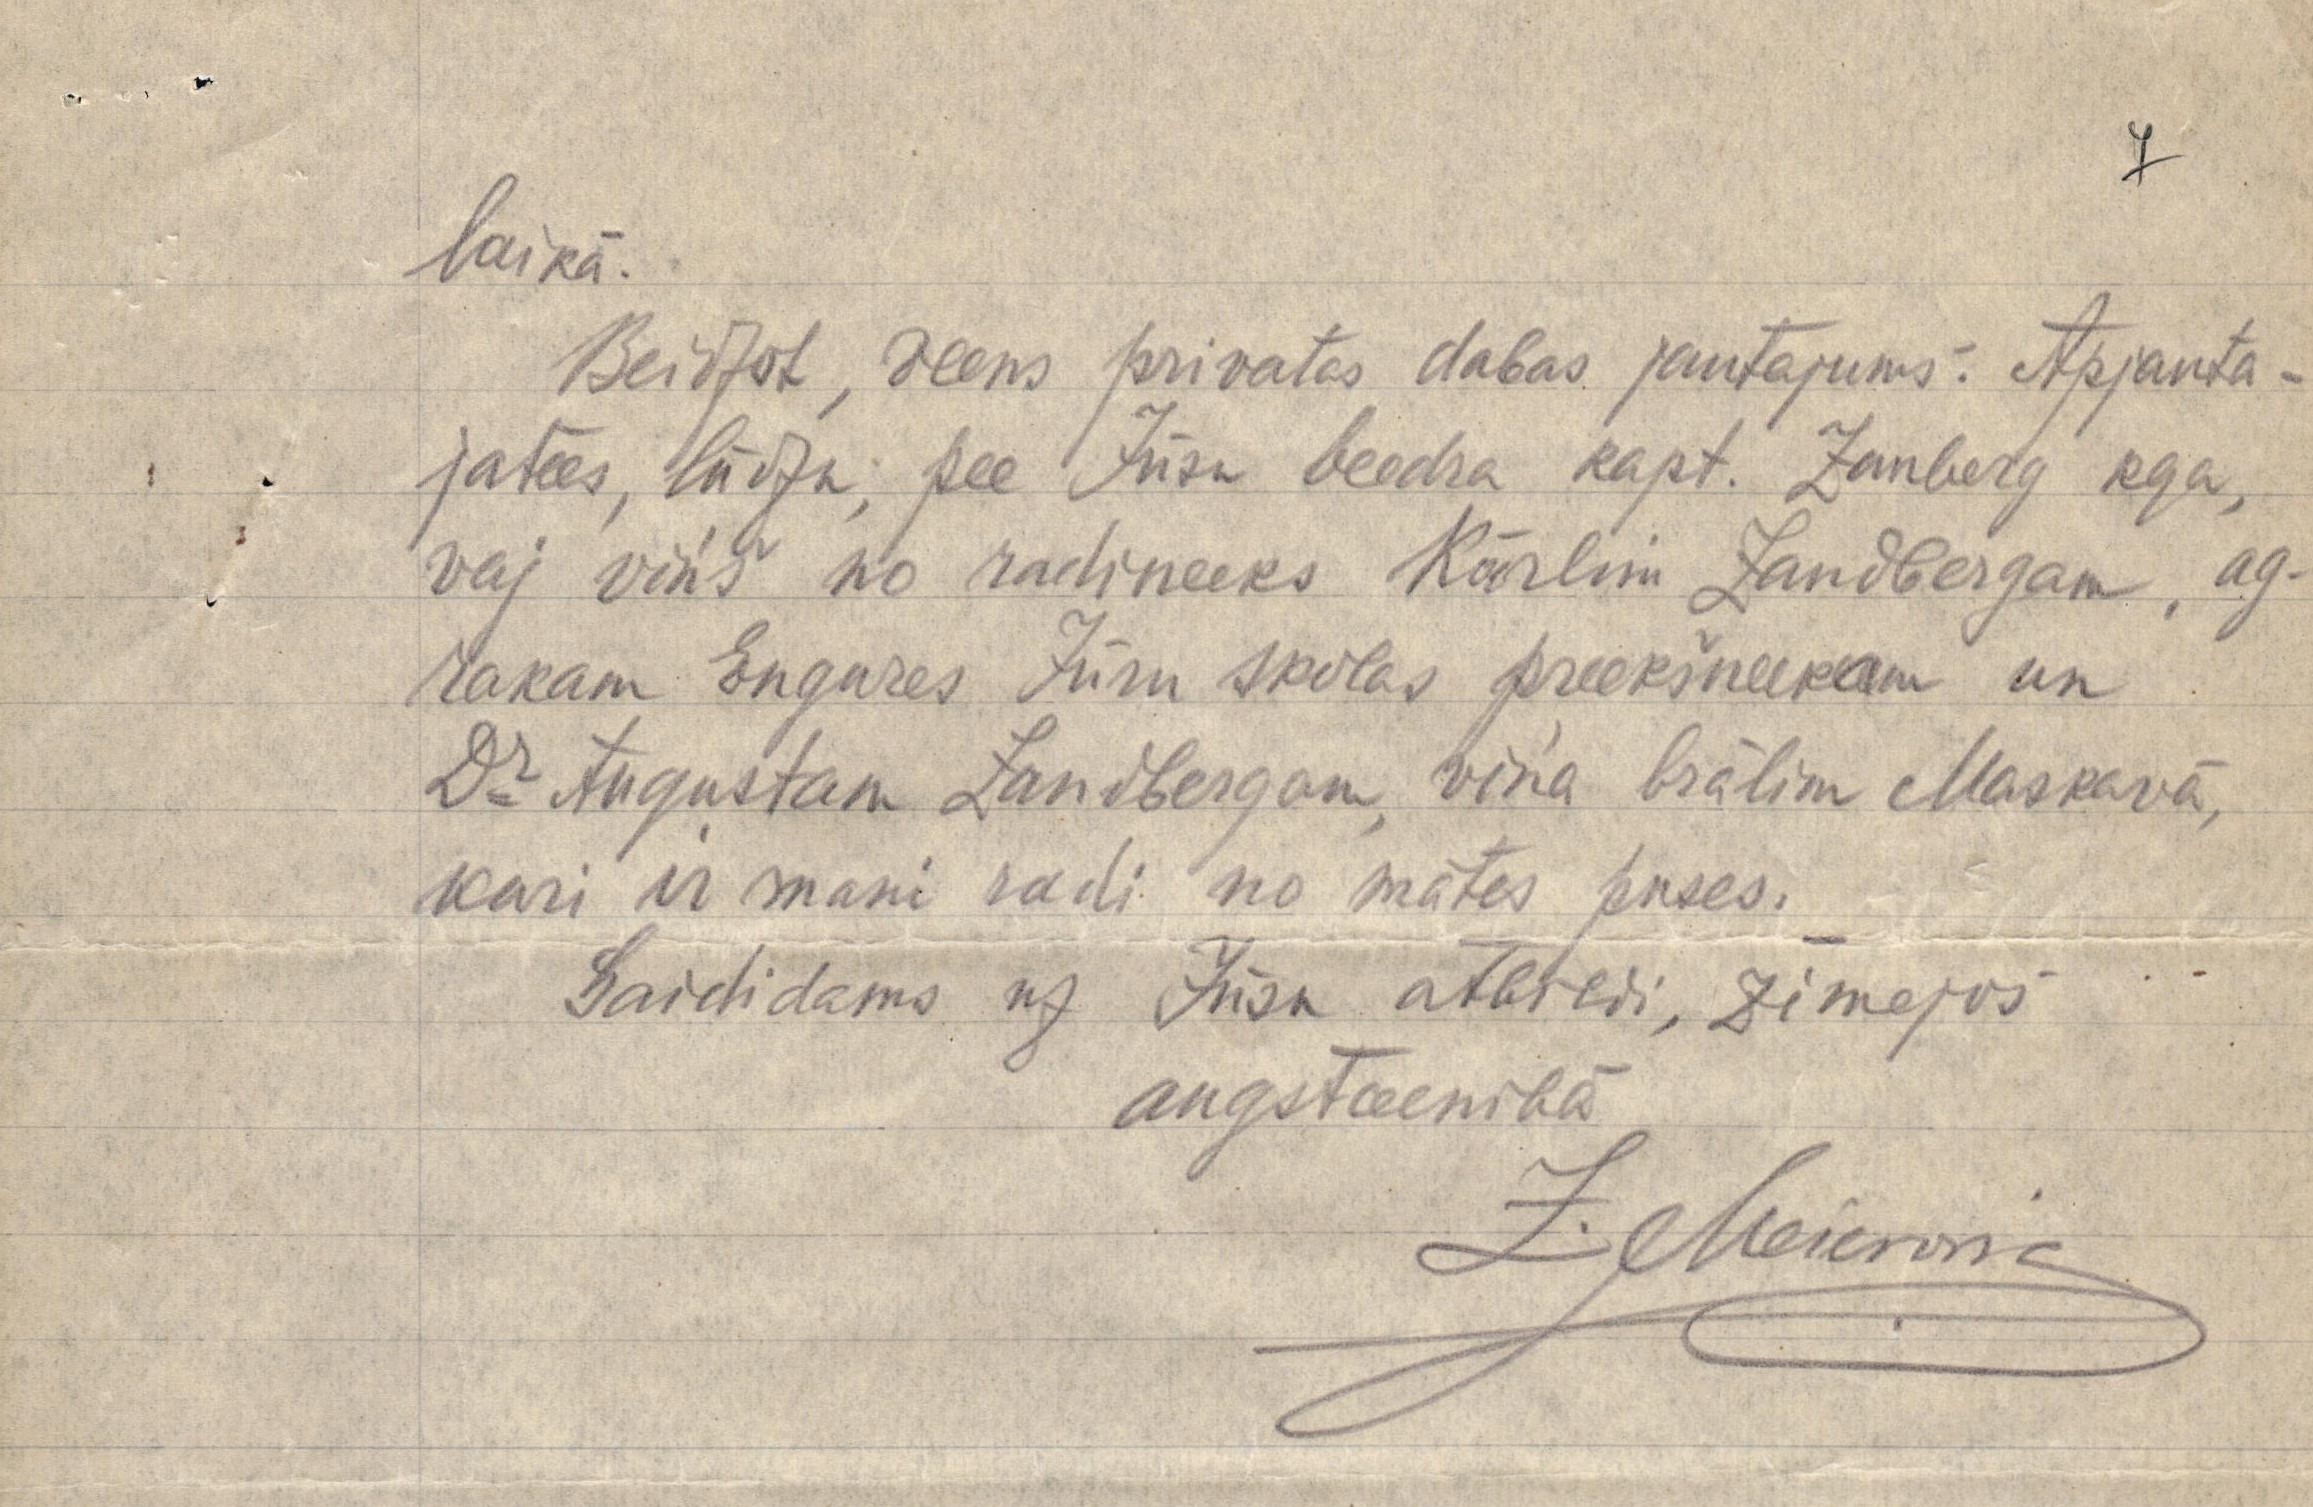 7
laikā.
Beidzot, veens privatas dabas jautajums: Apjauta-
jatees, lūdzu, pee Jūsu beedra kapt. Zanberg kga,
vaj viņš no radineeks Kārlim Zandbergam, ag-
rakam Engures Jūru skolas preekšneekam un
Dr Augustam Zandbergam, viņa brālim Maskavā,
kuri ir mani radi no mātes puses.
Gaididams uz Jūsu atbildi, zīmejos
augstceenibā
Z. Meierovic